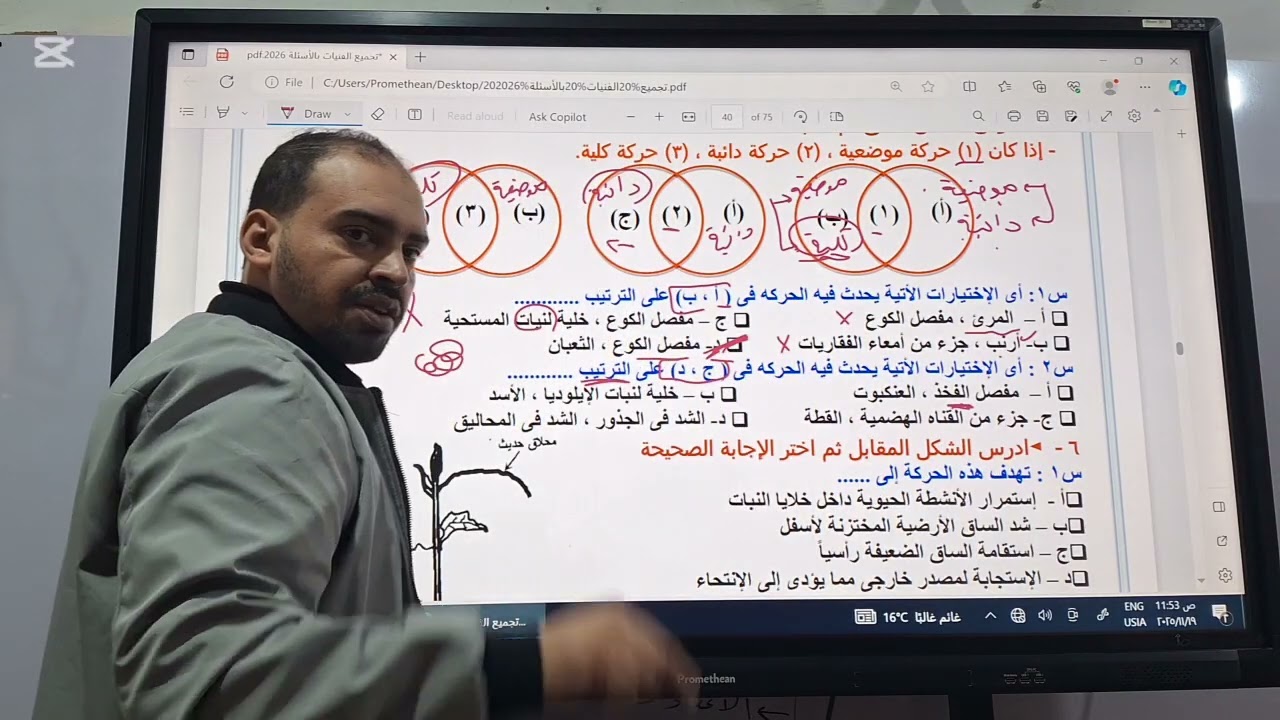 تجميع الفنيات بالأسئلة 2026.pdf
File C:/Users/Promethean/Desktop/202026%تجميع%20الفنيات%20بالأسئلة.pdf
Draw Read aloud Ask Copilot 40 of 75
- إذا كان (١) حركة موضعية ، (٢) حركة دائبة ، (٣) حركة كلية.
موضعية
دائبة
(أ) (١) (ب)
موضعية
كلية
(أ) (٢) (ج)
دائبة
دائبة
(ب) (٣)
موضعية
س١: أى الإختيارات الأتية يحدث فيه الحركه فى (أ ، ب) على الترتيب ............
أ – المرئ ، مفصل الكوع
ج – مفصل الكوع ، خلية لنبات المستحية
ب- أرنب ، جزء من أمعاء الفقاريات
د- مفصل الكوع ، الثعبان
س٢ : أى الإختيارات الأتية يحدث فيه الحركه فى (ج ، د) على الترتيب ............
أ – مفصل الفخذ ، العنكبوت
ب – خلية لنبات الإيلوديا ، الأسد
ج- جزء من القناه الهضمية ، القطة
د- الشد فى الجذور ، الشد فى المحاليق
٦ - ◄ادرس الشكل المقابل ثم اختر الإجابة الصحيحة
محلاق حديث
س١ : تهدف هذه الحركة إلى ......
أ - إستمرار الأنشطة الحيوية داخل خلايا النبات
ب – شد الساق الأرضية المختزنة لأسفل
ج – استقامة الساق الضعيفة رأسياً
د – الإستجابة لمصدر خارجى مما يؤدى إلى الإنتحاء
تجميع الف...
16°C غائم غالبًا
ENG
USIA
11:53 ص
٢٠٢٥/١١/١٩
Promethean